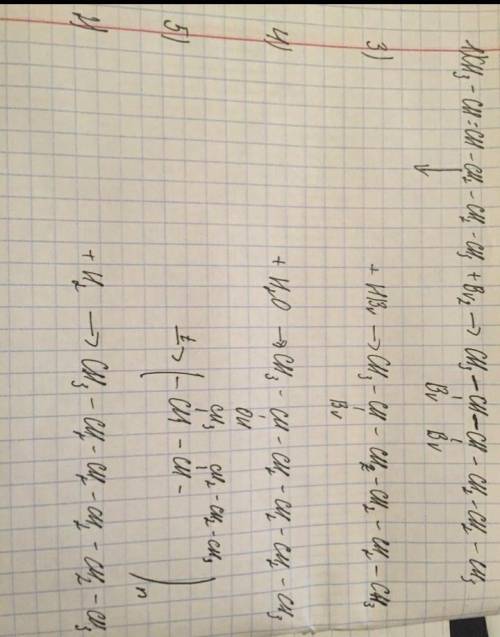 1) CH3 - CH = CH - CH2 - CH2 - CH3 + Br2 → CH3 - CH - CH - CH2 - CH2 - CH3
Br Br
3) + HBr → CH3 - CH - CH2 - CH2 - CH2 - CH3
Br
4) + H2O → CH3 - CH - CH2 - CH2 - CH2 - CH3
OH
CH3 CH2 - CH2 - CH3
5) t → ( - CH - CH - )n
2) + H2 → CH3 - CH2 - CH2 - CH2 - CH2 - CH3